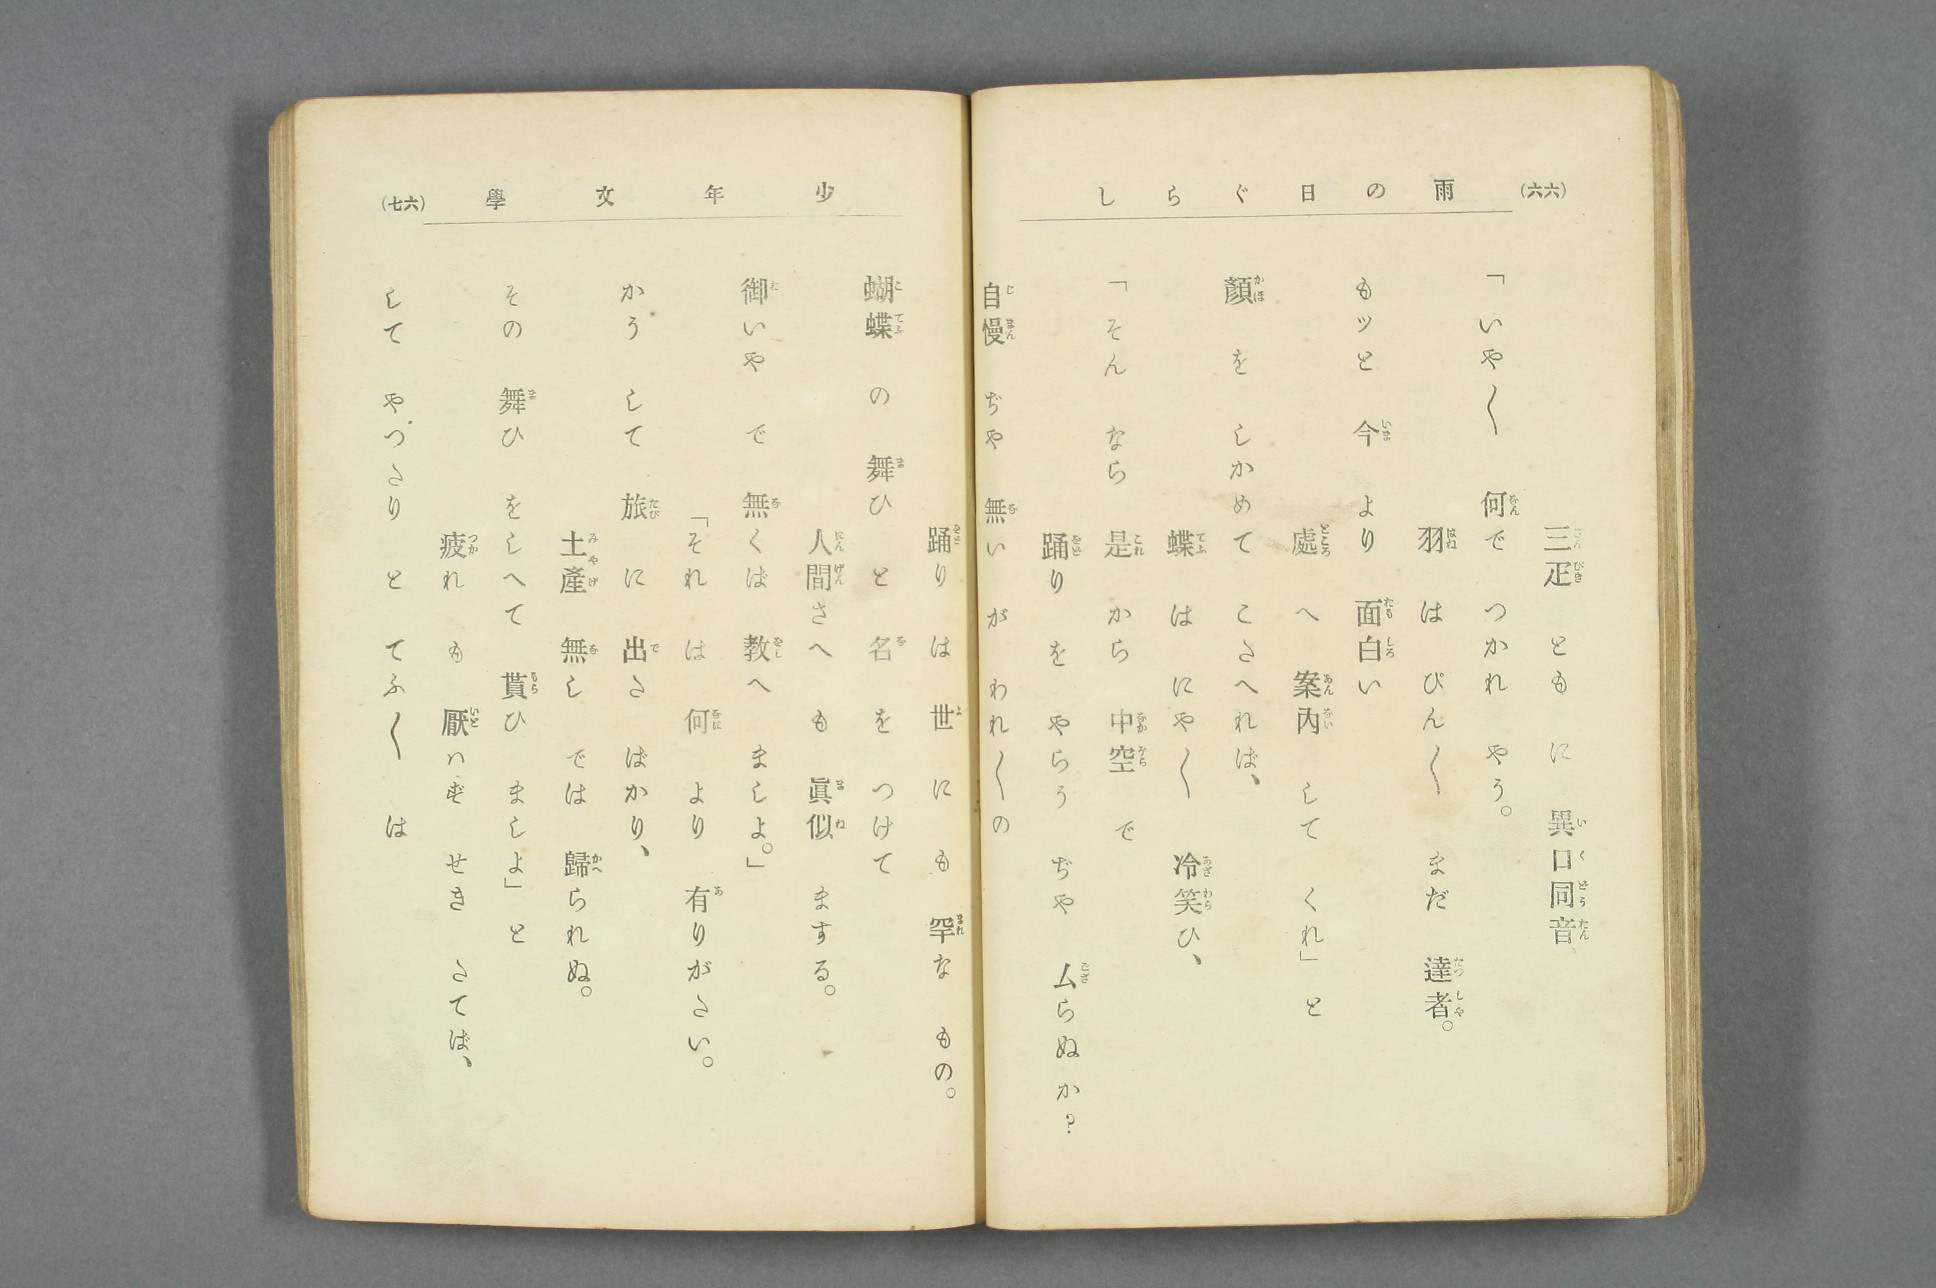 (六六)
雨の日ぐらし
三疋 ともに 異口同音
「いや〱 何で つかれ やう。
羽は ぴん〱 まだ 達者。
もッと 今より 面白い
處へ 案內 して くれ」と
顏を しかめて こさへれば、
蝶は にや〱 冷笑ひ、
「そんなら 是から 中空で
踊りを やらう ぢや ムらぬか?
自慢ぢや 無いが われ〱の
少年文學
(六七)
踊りは 世にも 罕な もの。
蝴蝶の 舞ひと 名を つけて
人間さへも 眞似 まする。
御いやで 無くば 教へ ましよ。」
「それは 何より 有りがたい。
かう して 旅に 出た ばかり、
土產 無しでは 歸られぬ。
その 舞ひを しへて 貰ひ ましよ」と
疲れも 厭はず せき たてば、
して やつたりと てふ〱は